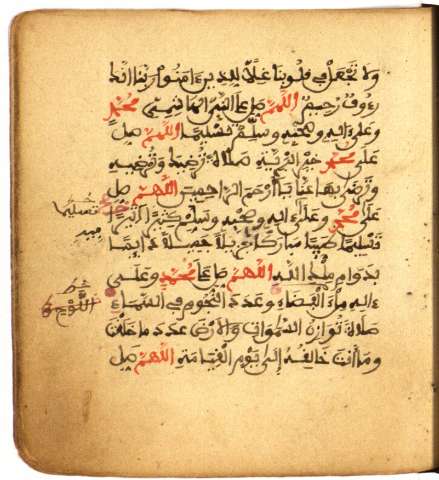 ولا تجعل في قلوبنا غلا للذين ءامنوا ربنا انك
رءوف رحيم اللهم صل على النبي الهاشمي محمد
وعلى ءاله وصحبه وسلم تسليما اللهم صل
على محمد خير البرية صلاة ترضيك وترضيه
وترضى بها عنا يا أرحم الراحمين اللهم صل
على محمد وعلى ءاله وصحبه وسلم كثيرا
تسليما طيبا مباركا جزيلا جميلا دائما
بدوام ملك الله اللهم صل على محمد وعلى
ءاله ملء الفضاء وعدد النجوم في السماء
صلاة توازن السموات والارض عدد ما خلقت
وما أنت خالقه إلى يوم القيامة اللهم صل
تسليما
فيه